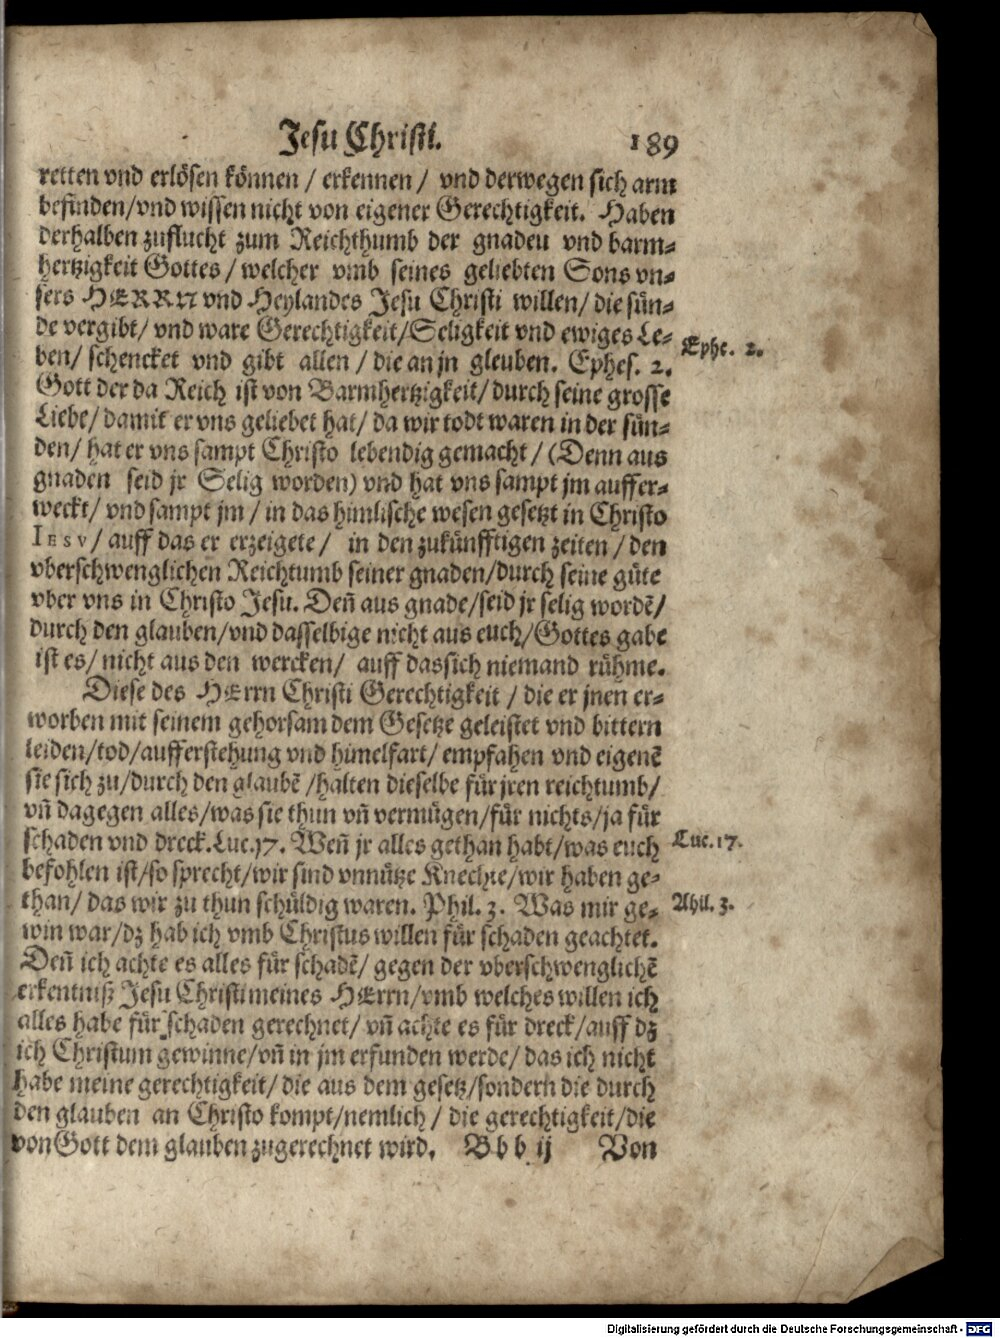 Jesu Christi. 189
retten vnd erlösen können / erkennen / vnd derwegen sich arm
befinden/vnd wissen nicht von eigener Gerechtigkeit. Haben
derhalben zuflucht zum Reichthumb der gnaden vnd barm-
hertzigkeit Gottes / welcher vmb seines geliebten Sons vn-
sers HERRN vnd Heylandes Jesu Christi willen/ die sün-
de vergibt/ vnd ware Gerechtigkeit/Seligkeit vnd ewiges Le-
Ephe. 2.
ben/ schencket vnd gibt allen / die an jn gleuben. Ephes. 2.
Gott der da Reich ist von Barmhertzigkeit/ durch seine grosse
Liebe/ damit er vns geliebet hat/ da wir todt waren in der sün-
den/ hat er vns sampt Christo lebendig gemacht / (Denn aus
gnaden seid jr Selig worden) vnd hat vns sampt jm auffer-
weckt/ vnd sampt jm / in das himlische wesen gesetzt in Christo
IESV / auff das er erzeigete / in den zukünfftigen zeiten / den
vberschwenglichen Reichtumb seiner gnaden/durch seine güte
vber vns in Christo Jesu. Deñ aus gnade/seid jr selig wordẽ/
durch den glauben/vnd dasselbige nicht aus euch/Gottes gabe
ist es/ nicht aus den wercken/ auff dassich niemand rühme.
Diese des HErrn Christi Gerechtigkeit / die er jnen er-
worben mit seinem gehorsam dem Gesetze geleistet vnd bittern
leiden/tod/aufferstehung vnd himelfart/ empfahen vnd eigenẽ
sie sich zu/durch den glaubẽ /halten dieselbe für jren reichtumb/
vñ dagegen alles/was sie thun vñ vermügen/für nichts/ja für
schaden vnd dreck.Luc.17. Weñ jr alles gethan habt/was euch
Luc. 17.
befohlen ist/so sprecht/wir sind vnnütze Knechte/wir haben ge-
than/ das wir zu thun schüldig waren. Phil. 3. Was mir ge-
Phil. 3.
win war/dz hab ich vmb Christus willen für schaden geachtet.
Deñ ich achte es alles für schadẽ/ gegen der vberschwenglichẽ
erkentniß Jesu Christi meines HErrn/vmb welches willen ich
alles habe für schaden gerechnet/ vñ achte es für dreck/auff dz
ich Christum gewinne/vñ in jm erfunden werde/ das ich nicht
habe meine gerechtigkeit/ die aus dem gesetz/sondern die durch
den glauben an Christo kompt/nemlich / die gerechtigkeit/die
von Gott dem glauben zugerechnet wird. Bbb ij Von
Digitalisierung gefördert durch die Deutsche Forschungsgemeinschaft - DFG